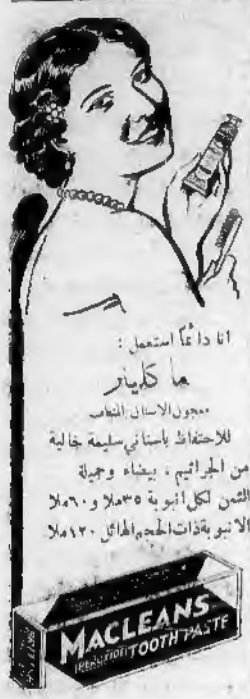 انا دائماً استعمل :
ماكلينز
معجون الاسنان
للاحتفاظ باسناني سليمة خالية
من الجراثيم ، بيضاء وجميلة
الثمن لكل انبوبة ٣٥ملا و٦٠ملا
الانبوبة ذات الحجم الهائل ١٢٠ملا
MACLEANS
(PEROXIDE) TOOTH PASTE